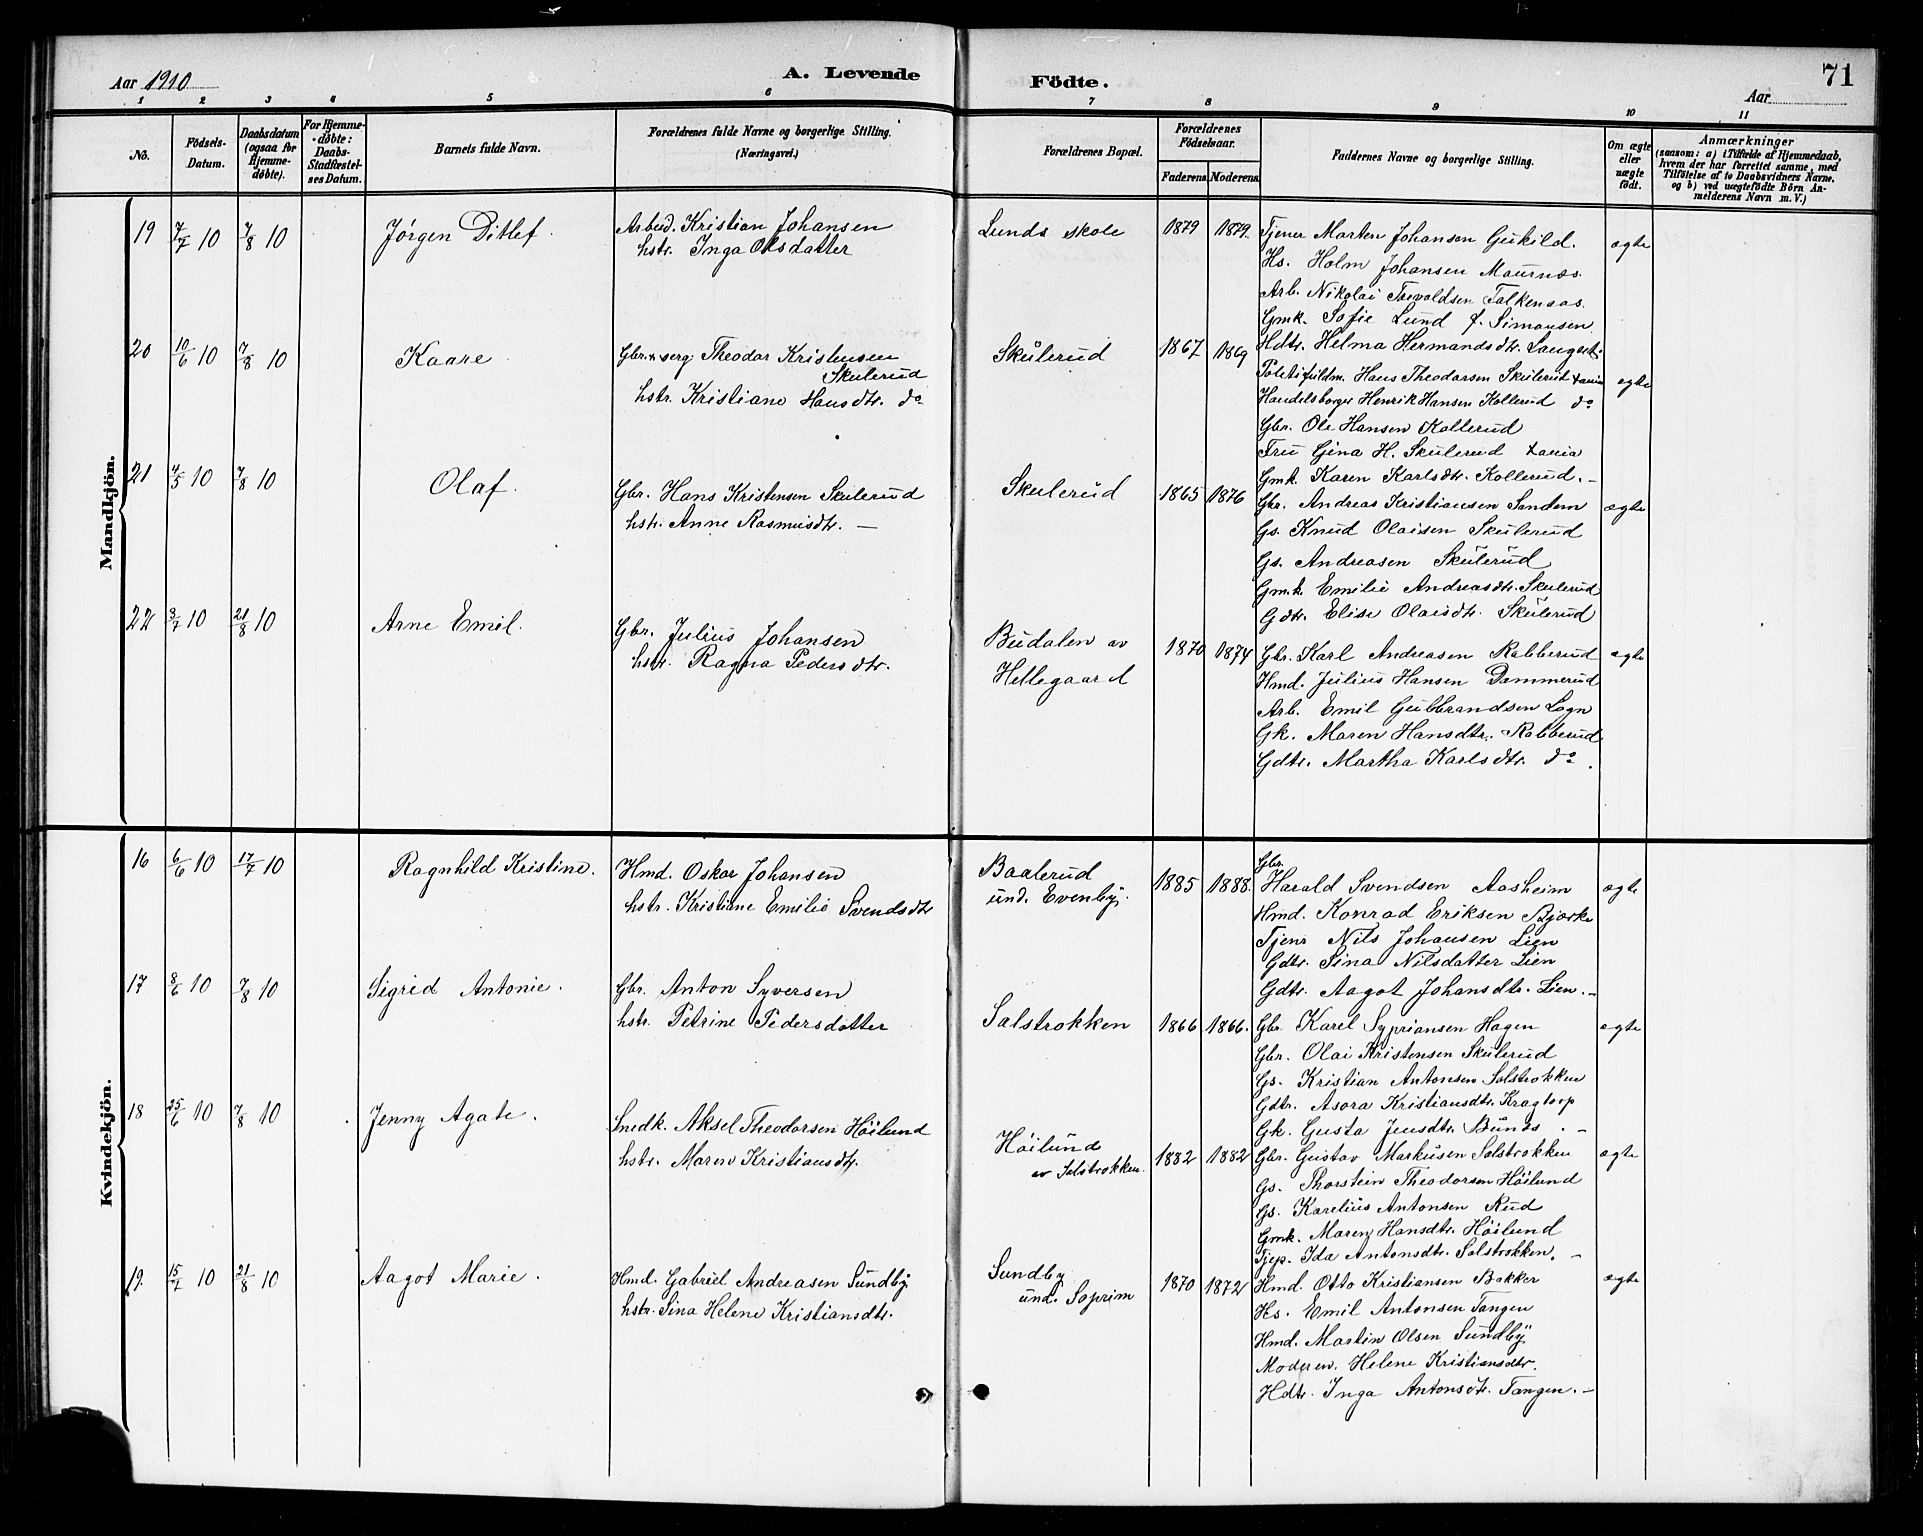 Aar 1910
A. Levende
Födte.
71
Aar
1 2 3 4 5 6 7 8 9 10 11
No.
Födsels-
Datum.
Daabsdatum
(ogsaa for
Hjemme-
døbte).
For Hjemme-
døbte:
Daabs-
Stadfæstel-
ses Datum.
Barnets fulde Navn.
Forældrenes fulde Navne og borgerlige Stilling.
(Næringsvei.)
Forældrenes Bopæl.
Forældrenes
Födselsaar.
Faderens. Moderens.
Faddernes Navne og borgerlige Stilling.
Om ægte
eller
uægte
födt.
Anmærkninger
(saasom: a) i Tilfælde af Hjemmedaab,
hvem der har forrettet samme, med
Tilföielse af to Daabsvidners Navne.
og b) ved uægtefödte Börn An-
melderens Navn m. V.)
Mandkjön.
19 7/7 10 7/8 10 Jørgen Ditlef.
Arbeid. Kristian Johansen
hstr. Inga Olsdatter
Lunds skole
1879 1879.
Tjener Marten Johansen Gukild.
Hs. Holm Johansen Maurnæs.
Arb. Nikolai Torvaldsen Falkenaas.
Gmk. Sofie Lund f. Simonsen
ægte
20 10/6 10 7/8 10 Kaare
Gbr. & serg. Theodor Kristensen
Skulerud
hstr. Kristiane Hansdtr. do
Skulerud
1867 1869
Hdtr. Helma Hermandsdtr.
Politifuldm. Hans Theodorsen Skulerud
Handelsborger Henrik Hansen Kollerud do
Gbr. Ole Hansen Kollerud
Fru Gina H. Skulerud
Gmk. Karen Karlsdtr. Kollerud. -
ægte
21 4/5 10 7/8 10 Olaf.
Gbr. Hans Kristensen Skulerud
hstr. Anne Rasmusdtr. —
Skulerud
1865 1876
Gbr. Andreas Kristiansen Sandem
Gs. Knud Olaisen Skulerud
Gs. Andreasen Skulerud
Gmk. Emilie Andreasdtr. Skulerud
Gdtr. Elise Olaisdtr. Skulerud
ægte
22 8/7 10 21/8 10 Arne Emil.
Gbr. Julius Johansen
hstr. Ragna Pedersdtr.
Budalen av
Hellegaard
1870 1874
Gbr. Karl Andreasen Rabberud
Hmd. Julius Hansen Dammerud
Arb. Emil Gulbrandsen Logn
Gk. Maren Hansdtr. Rabberud
Gdtr. Martha Karlsdtr. do.
ægte
Kvindekjön.
16 6/6 10 17/7 10 Ragnhild Kristine.
Hmd. Oskar Johansen
hstr. Kristiane Emilie Svendsdtr
Baalerud
und. Evenby.
1885 1888.
Gbr.
Harald Svendsen Aasheim
Hmd. Konrad Eriksen Bjørke
Tjener Nils Johansen Lien
Gdtr. Sina Nilsdatter Lien
Gdtr. Aagot Johansdtr. Lien. -
ægte
17 8/6 10 7/8 10 Sigrid Antonie.
Gbr. Anton Syversen
hstr. Petrine Pedersdatter
Salstrokken
1866 1866.
Gbr. Karel Sypriansen Hagen
Gbr. Olai Kristensen Skulerud
Gs. Kristian Antonsen Solstrokken
Gdtr. Asora Kristiansdtr. Kragtorp
Gk. Gusta Jensdtr. Bunes. -
ægte
18 25/6 10 7/8 10 Jenny Agate.
Snedk. Aksel Theodorsen Höilund
hstr. Maren Kristiansdtr.
Höilund
av Solstrokken.
1882 1882
Gbr. Gustav Markusen Solstrokken
Gs. Thorstein Theodorsen Höilund
Gs. Karelius Antonsen Rud
Gmk. Maren Hansdtr. Höilund
Tjep. Ida Antonsdtr. Solstrokken. -
ægte
19. 15/7 10 21/8 10 Aagot Marie.
Hmd. Gabriel Andreasen Sundby
hstr. Sina Helene Kristiansdtr.
Sundby
und. Soprim
1870 1872
Hmd. Otto Kristiansen Bakker
Hs. Emil Antonsen Tangen
Hmd. Martin Olsen Sundby
Moderen. Helene Kristiansdtr.
Hdtr. Inga Antonsdtr. Tangen. -
ægte